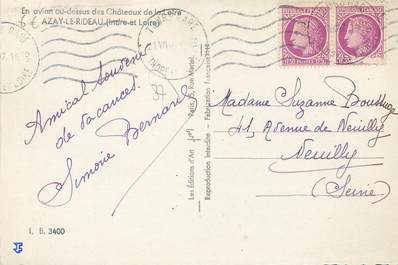 En avion au-dessus des Châteaux de la Loire
6€
AZAY-LE-RIDEAU (Indre et Loire)
Amical souvenir
de vacances!
Simone Bernard
37
Les Editions d'Art
Paris, 15, Rue Martel
Reproduction interdite - Fabrication Française
Madame Suzanne
41, Avenue de Neuilly
Neuilly
(Seine)
I. B. 3400